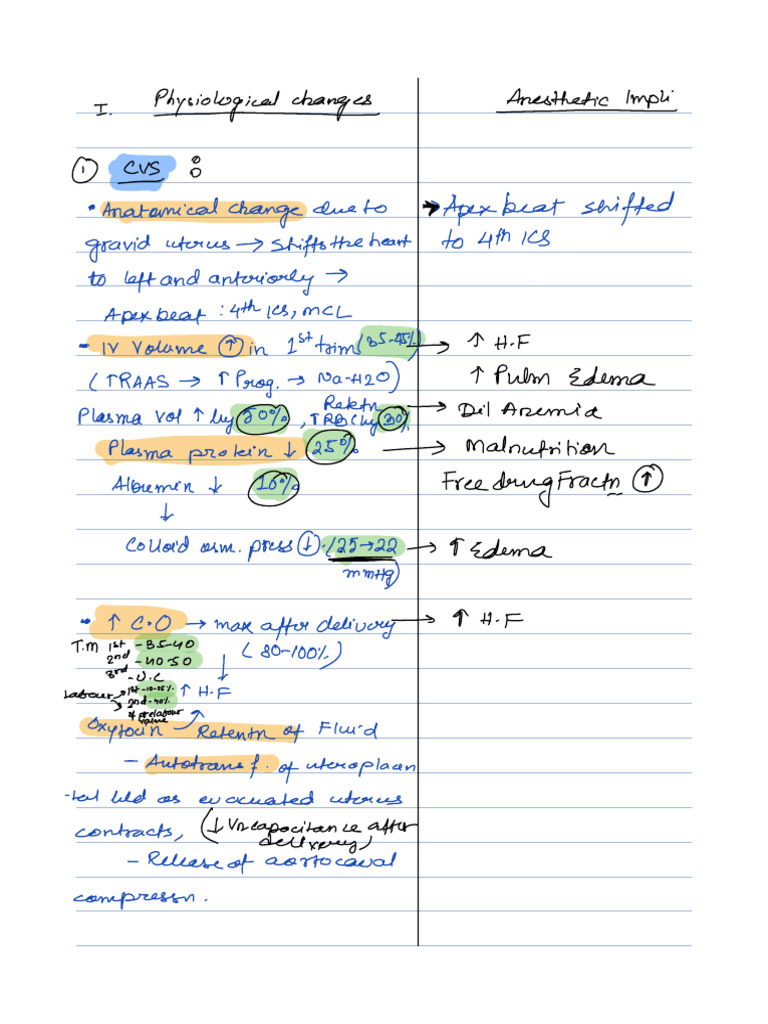 I. Physiological changes
Anesthetic Impli
① CVS :
• Anatomical change due to
gravid uterus → shifts the heart
to left and anteriorly →
Apex beat : 4th ICS, MCL
→ Apex beat shifted
to 4th ICS
- IV Volume ↑ in 1st trim (35-45%) → ↑ H.F
(↑RAAS → ↑ Prog. → Na-H2O)
↑ Pulm Edema
Retktn
Plasma vol ↑ by 50%, ↑RBC by 30% → Dil Anemia
Plasma protein ↓ 25% → Malnutrition
Albumin ↓ 10%
Free drug Fractn ↑
↓
Colloid osm. press ↓. (25→22 → ↑ Edema
mmHg)
• ↑ C.O → max after delivery → ↑ H.F
(80-100%)
T.M 1st -35-40
2nd -40-50
3rd -U.C
↓
↑ H.F
Labour → 1st -10-25%
→ 2nd -40%
of prelabour
value
Oxytocin → Retentn of Fluid
- Autotransf. of uteroplacen
-tal bld as evacuated uterus
contracts, (↓ Vn capacitance after
delivery)
- Release of aortocaval
compressn.